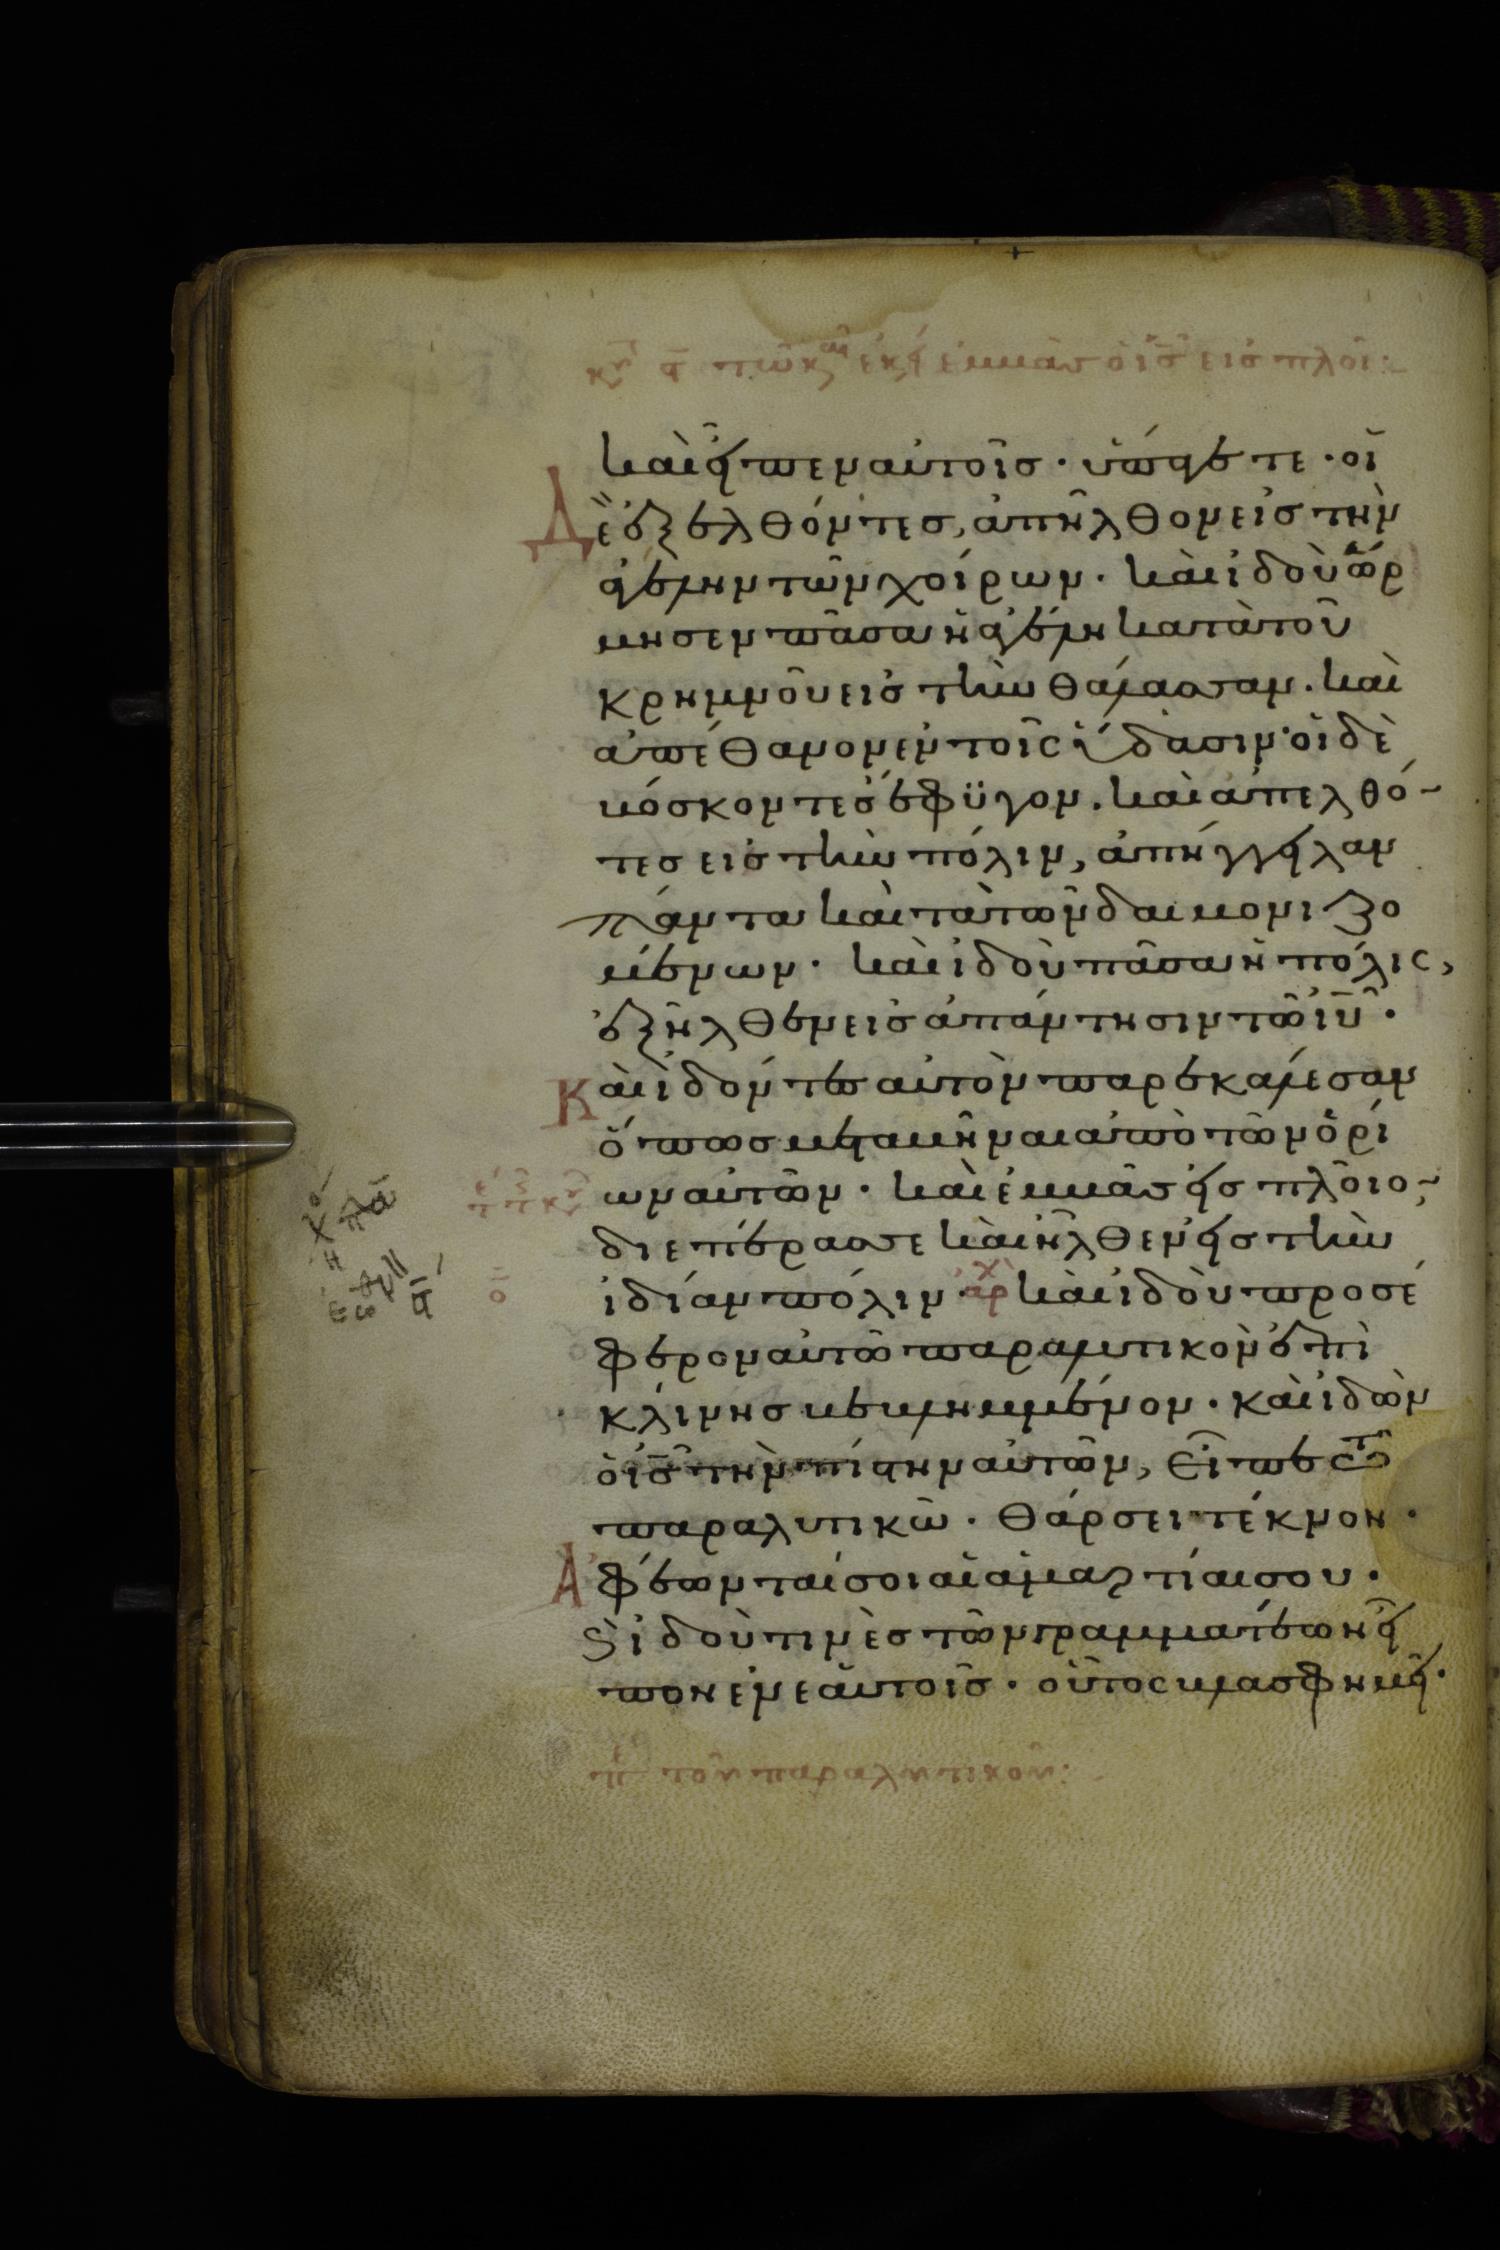 καὶ εἶπεν αὐτοῖς · ὑπάγετε · οἱ
Δὲ ἐξελθόντες, ἀπῆλθον εἰς τὴν
ἀγέλην τῶν χοίρων · καὶ ἰδοὺ ὥρ
μησεν πᾶσα ἡ ἀγέλη κατὰ τοῦ
κρημνοῦ εἰς τὴν θάλασσαν · καὶ
ἀπέθανον ἐν τοῖς ὕδασιν · οἱ δὲ
βόσκοντες ἔφϋγον · καὶ ἀπελθό
τες εἰς τὴν πόλιν, ἀπήγγειλαν
πάντα καὶ τὰ τῶν δαιμονιζο
μένων · καὶ ἰδοὺ πᾶσα ἡ πόλις,
ἐξῆλθεν εἰς ἀπάντησιν τῶ ιυ ·
Καὶ ἰδόντες αὐτὸν παρεκάλεσαν
ὅπως μεταβῆναι ἀπὸ τῶν ὁρί
ων αὐτῶν · καὶ ἐμβὰς εἰς πλοῖο
διεπέρασε καὶ ἦλθεν εἰς τὴν
ἰδίαν πόλιν · αρχ καὶ ἰδοὺ προσέ
φερον αὐτῶ παραλυτικὸν ἐπὶ
κλίνης βεβλημμένον · καὶ ἰδὼν
ὁ ις τὴν πίστην αὐτῶν, εἶπε τῶ
παραλυτικῶ · θάρσει τέκνον ·
Ἀφέωνταί σοι αἱ ἁμαρτίαι σου ·
ϗ ἰδού τινὲς τῶν γραμματέων εἶ
πον ἐν ἑαυτοῖς · οὗτος βλασφημεῖ ·